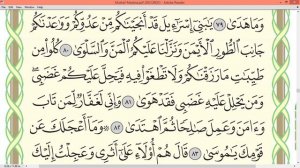 وَمَا هَدَىٰ ٧٩ يَٰبَنِىٓ إِسْرَٰٓءِيلَ قَدْ أَنجَيْنَٰكُم مِّنْ عَدُوِّكُمْ وَوَٰعَدْنَٰكُمْ
جَانِبَ ٱلطُّورِ ٱلْأَيْمَنَ وَنَزَّلْنَا عَلَيْكُمُ ٱلْمَنَّ وَٱلسَّلْوَىٰ ٨٠ كُلُوا۟ مِن
طَيِّبَٰتِ مَا رَزَقْنَٰكُمْ وَلَا تَطْغَوْا۟ فِيهِ فَيَحِلَّ عَلَيْكُمْ غَضَبِى
وَمَن يَحْلِلْ عَلَيْهِ غَضَبِى فَقَدْ هَوَىٰ ٨١ وَإِنِّى لَغَفَّارٌ لِّمَن تَابَ
وَءَامَنَ وَعَمِلَ صَٰلِحًا ثُمَّ ٱهْتَدَىٰ ٨٢ وَمَآ أَعْجَلَكَ عَن
قَوْمِكَ يَٰمُوسَىٰ ٨٣ قَالَ هُمْ أُو۟لَآءِ عَلَىٰٓ أَثَرِى وَعَجِلْتُ إِلَيْكَ